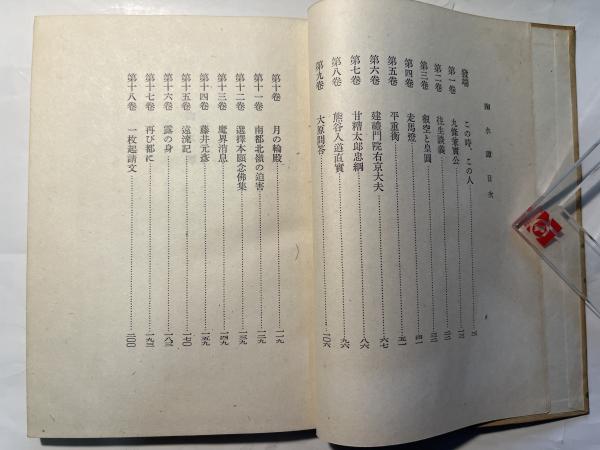 掬水譚目次
發端 この時、この人……三
第一卷 九條兼實公……一三
第二卷 往生談義……二二
第三卷 叡空と皇圓……三二
第四卷 走馬燈……四一
第五卷 平重衡……五一
第六卷 建禮門院右京大夫……六七
第七卷 甘糟太郎忠綱……八六
第八卷 熊谷入道直實……九六
第九卷 大原問答……一〇六
第十卷 月の輪殿……一一九
第十一卷 南都北嶺の迫害……一二九
第十二卷 選擇本願念佛集……一三九
第十三卷 魔界消息……一四九
第十四卷 藤井元彥……一五九
第十五卷 遠流記……一七〇
第十六卷 露の身……一八三
第十七卷 再び都に……一九三
第十八卷 一枚起請文……二〇〇